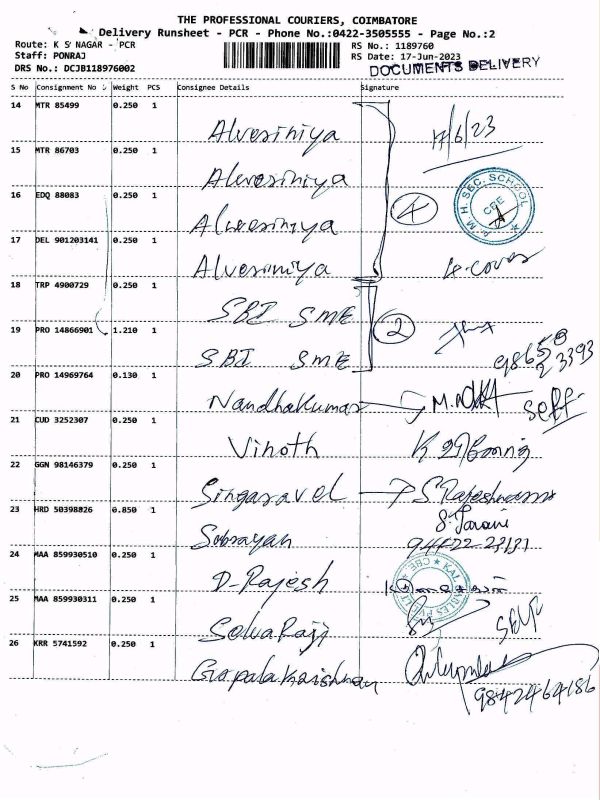 THE PROFESSIONAL COURIERS, COIMBATORE
Delivery Runsheet - PCR - Phone No.:0422-3505555 - Page No.:2
Route: K S NAGAR - PCR RS No.: 1189760
Staff: PONRAJ RS Date: 17-Jun-2023
DRS No.: DCJB118976002 DOCUMENTS DELIVERY
S No Consignment No Weight PCS Consignee Details Signature
14 MTR 85499 0.250 1
Alvesiniya 17/6/23
15 MTR 86703 0.250 1
Alvesiniya
16 EDQ 88083 0.250 1
Alvesiniya 4 H. SEC. SCHOOL CBE
17 DEL 901203141 0.250 1
Alvesiniya 4-Cover
18 TRP 4900729 0.250 1
SBI SME
19 PRO 14866901 1.210 1 2
SBI SME 98658 23393
20 PRO 14969764 0.130 1
Nandhakumar Self
21 CUD 3252307 0.250 1
Vinoth
22 GGN 98146379 0.250 1
Singaravel
23 HRD 50398826 0.850 1
Subrayan 94422 23131
24 MAA 859930510 0.250 1
D-Rajesh
25 MAA 859930311 0.250 1
SelvaRaji Self
26 KRR 5741592 0.250 1
Gopalakrishnan 9842464186